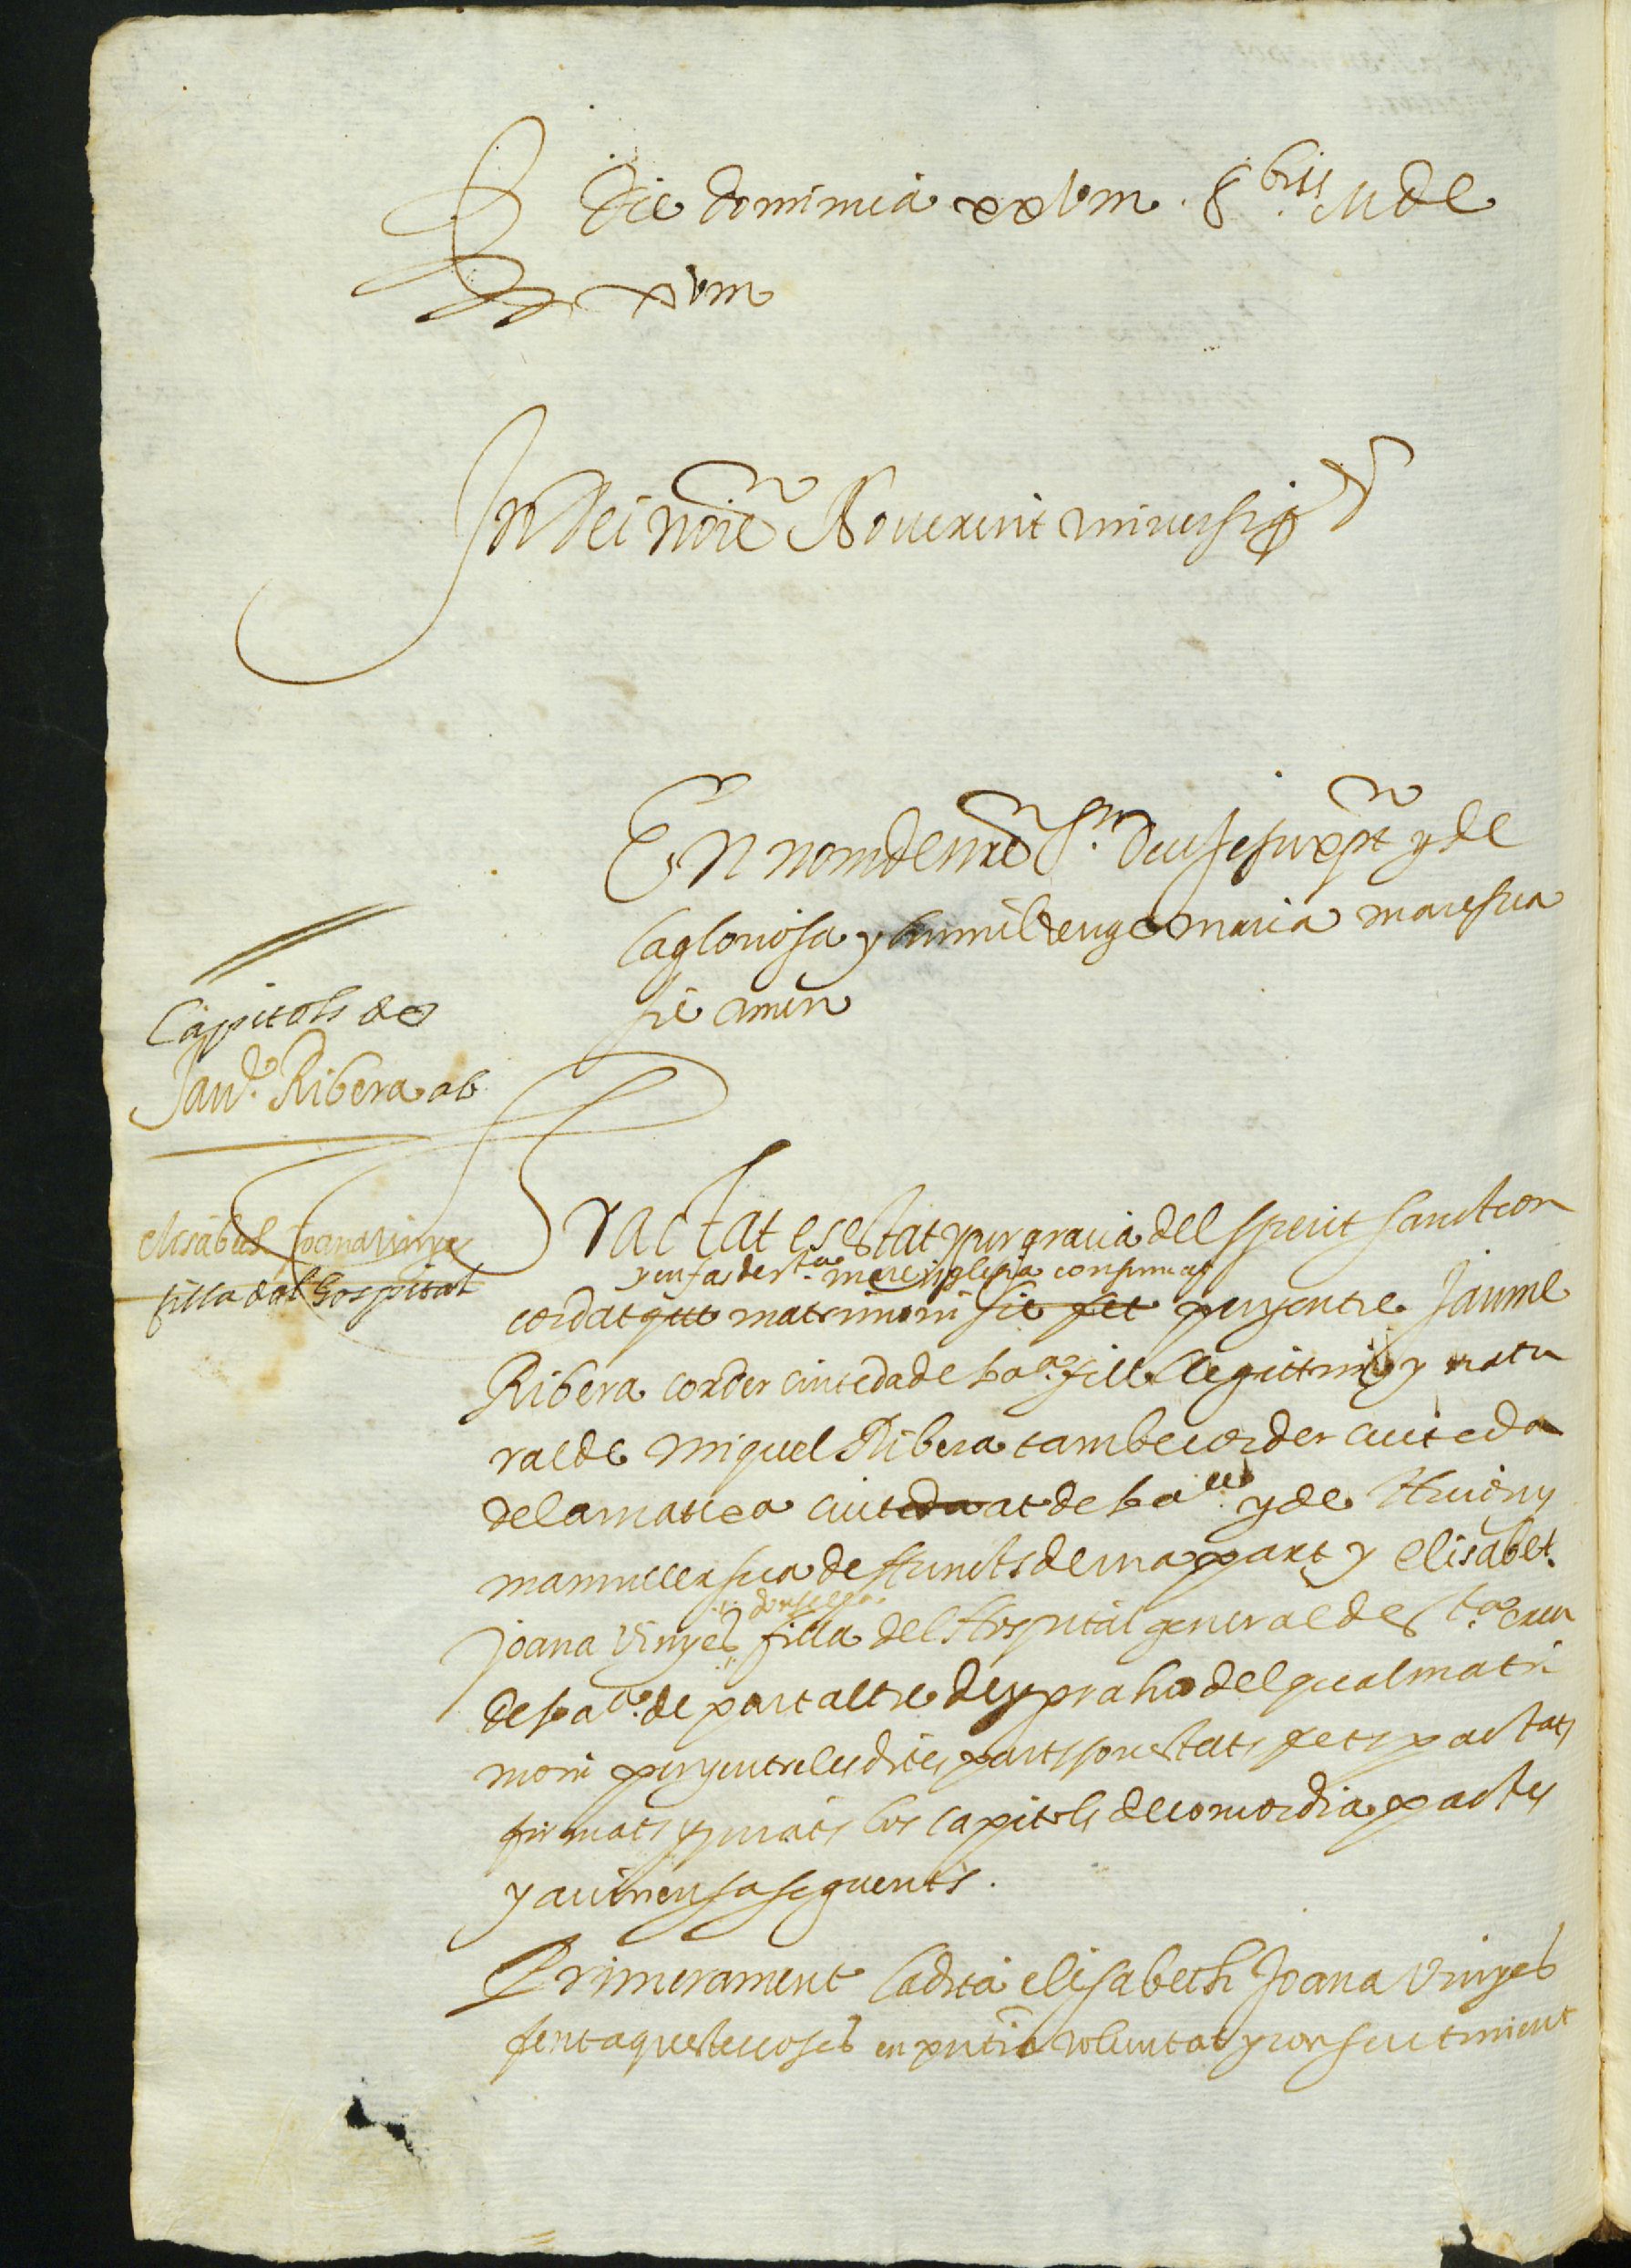 Die dominica xxvm. 8bris MDC
xvm
In Dei noie Noverint universi
En nom de nre Sr. Deu Jesu xpt y de
la gloriosa y humil verge maria mare sua
sie amen
Capitols de
Jau.e Ribera ab
elisabet Joana vinyes
filla dal Hospital
Tractat es estat y per gracia del sperit sanct con
y en fas de s.ta mare iglesia consumar
cordat que matrimoni sie fet per y entre Jaume
Ribera corder ciuteda de ba.a fill llegittim y natu
ral de Miquel Ribera tambe corder ciuteda
de la mateixa ciutedaat de ba.a y de
mammuller sua defuncts de una part y Elisabet
donsella
Joana Vinyes filla del Hospital general de S.ta creu
de ba.a de part altre de y pra ho del qual matri
moni per y entre les dites parts son estats fets pactats
firmats y jurats los capitols de concordia pactes
y avinensa seguents.
Primerament la dita elisabeth Joana Vinyes
fent aquestes coses en pntia voluntat y consentiment